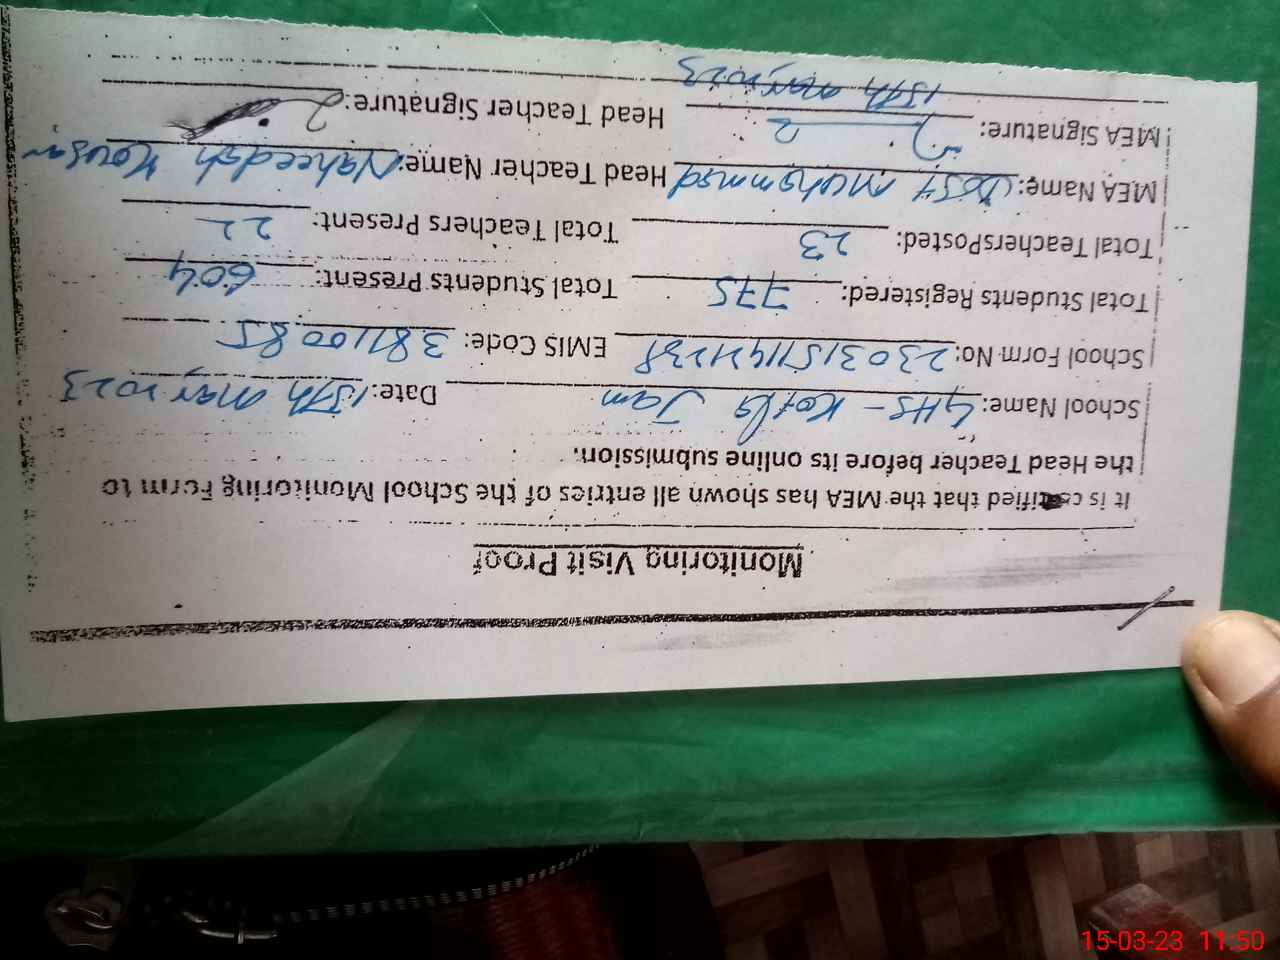 Monitoring Visit Proof
It is certified that the MEA has shown all entries of the School Monitoring Form to
the Head Teacher before its online submission.
School Name: GHS - Kotla Jam Date: 15th mar, 2023
School Form No: EMIS Code: 38110085
Total Students Registered: 775 Total Students Present: 604
Total TeachersPosted: 23 Total Teachers Present: 22
MEA Name: Dost Muhammad Head Teacher Name: Naheedah Kousar
MEA Signature: Head Teacher Signature:
15th mar, 2023
15-03-23 11:50